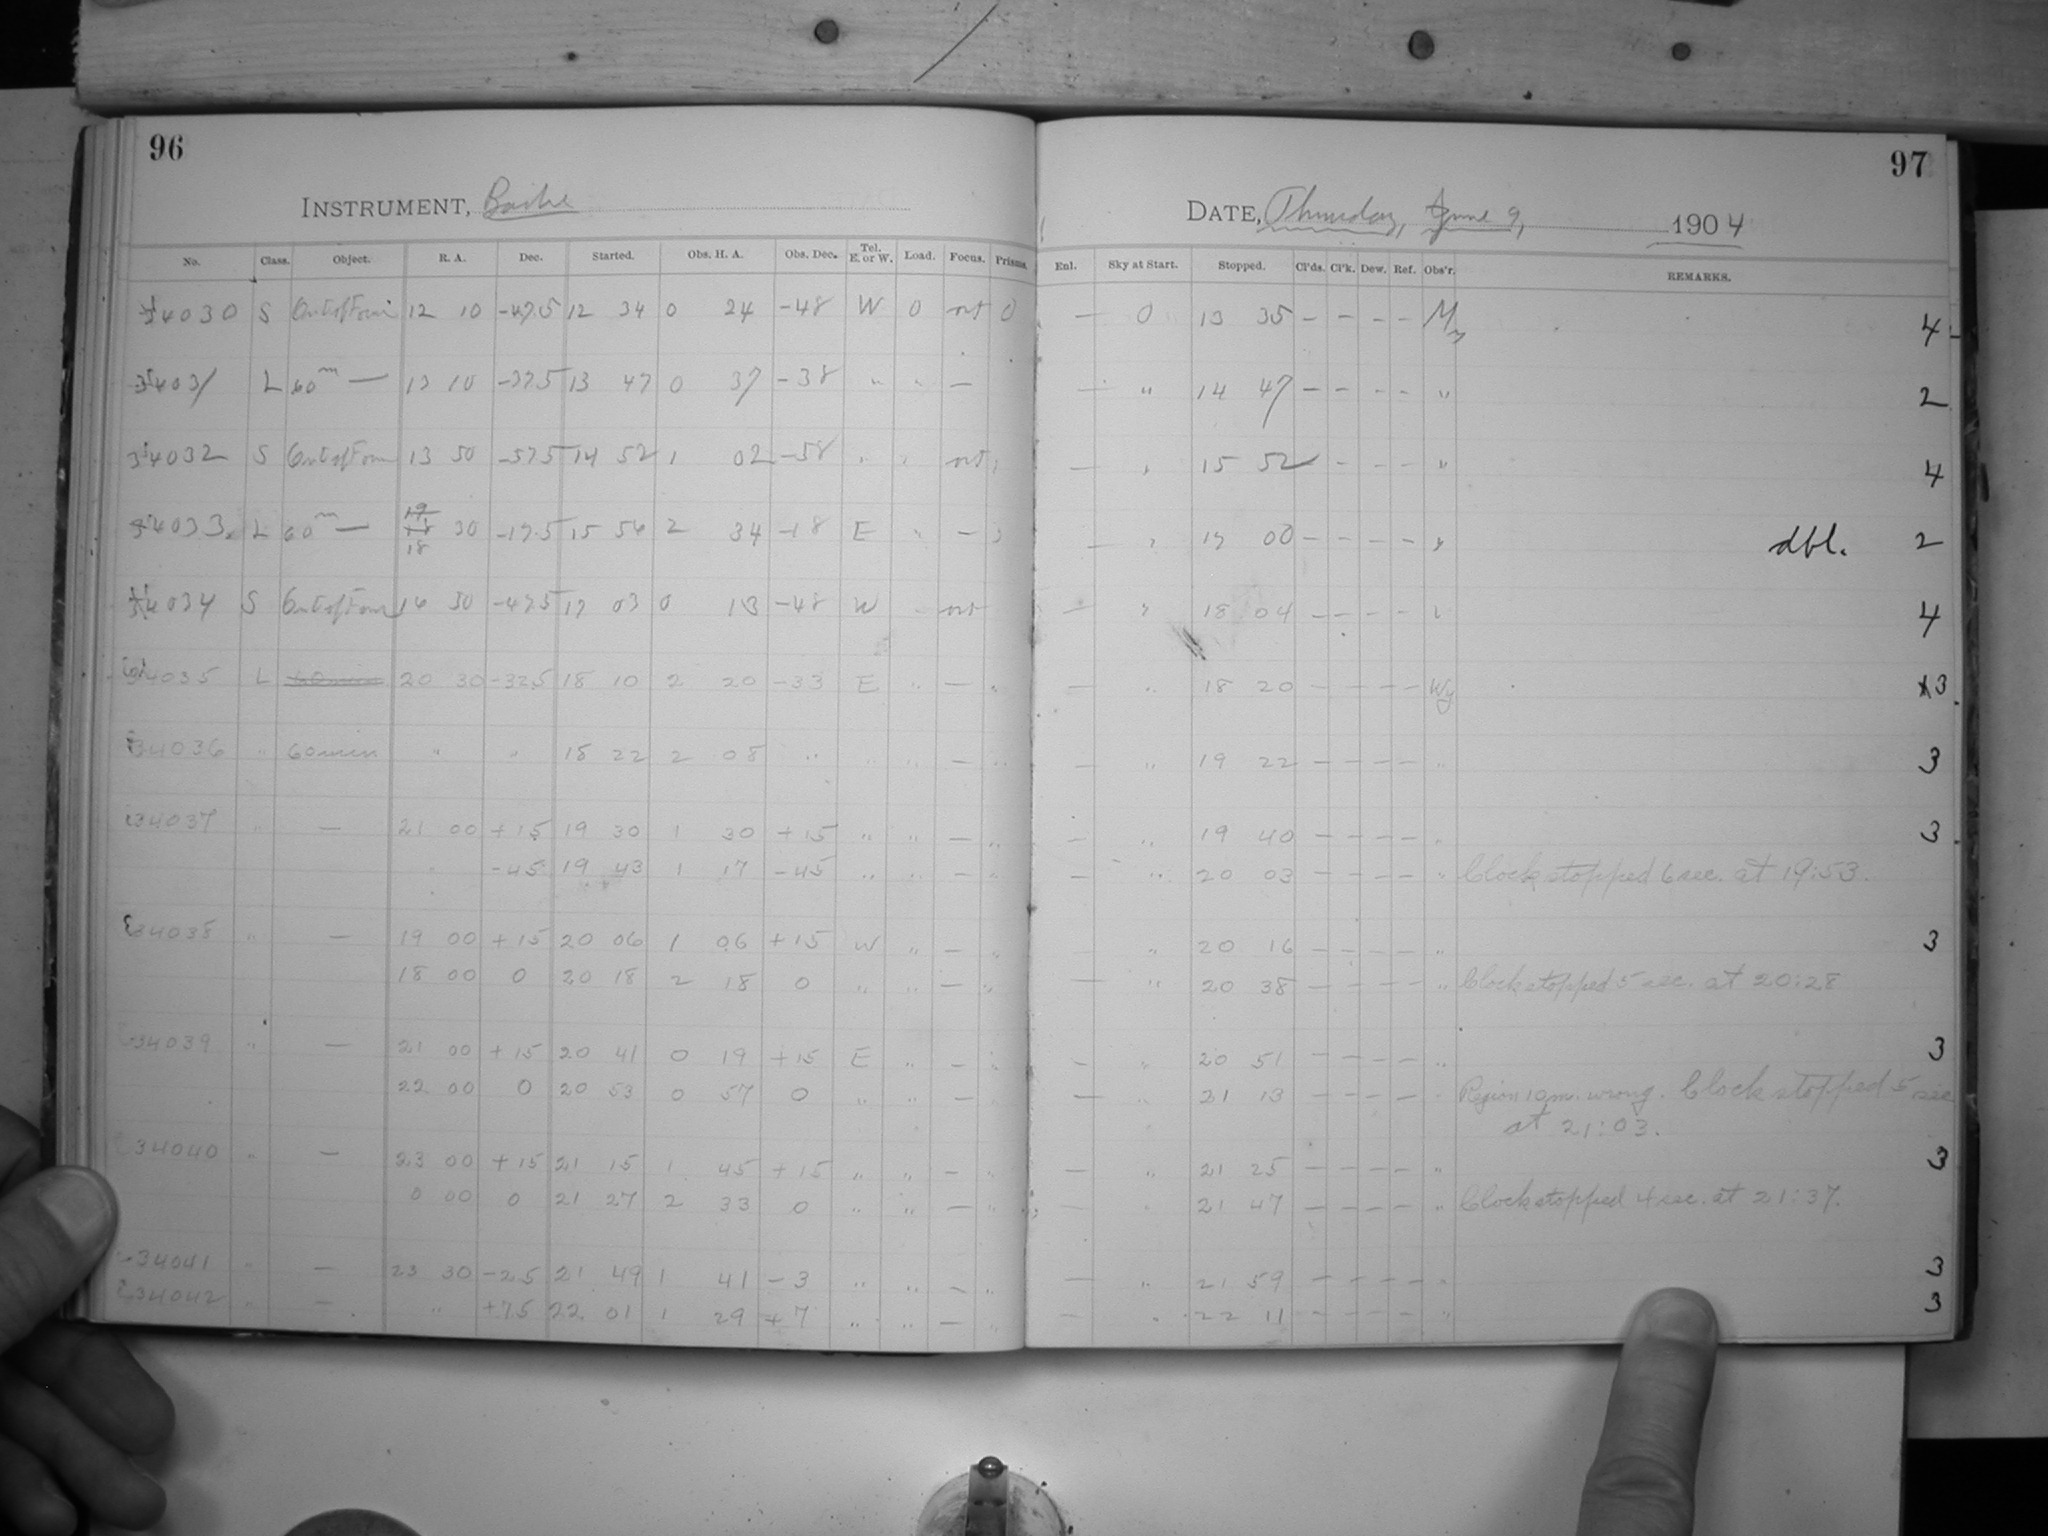 96
INSTRUMENT, Bache
No. Class. Object. R. A. Dec. Started. Obs. H. A. Obs. Dec. Tel. E. or W. Load. Focus. Prisms.
34030 S Out of Focus 12 10 -47.5 12 34 0 24 -48 W 0 out 0
34031 L 60m — 13 10 -37.5 13 47 0 37 -38 " " —
34032 S Out of Focus 13 50 -57.5 14 52 1 02 -58 " " out "
34033 L 60m — 18 30 -17.5 15 56 2 34 -18 E " — "
34034 S Out of Focus 16 50 -47.5 17 03 0 13 -48 W out
34035 L 60min 20 30 -32.5 18 10 2 20 -33 E " — "
34036 " 60min " " 18 22 2 08 " " " — "
34037 " — 21 00 +15 19 30 1 30 +15 " " — "
" -45 19 43 1 17 -45 " " — "
34038 " — 19 00 +15 20 06 1 06 +15 W " — "
18 00 0 20 18 2 18 0 " " — "
34039 " — 21 00 +15 20 41 0 19 +15 E " — "
22 00 0 20 53 0 57 0 " " — "
34040 " — 23 00 +15 21 15 1 45 +15 " " — "
0 00 0 21 27 2 33 0 " " — "
34041 " — 23 30 -2.5 21 49 1 41 -3 " " — "
34042 " — " +7.5 22 01 1 29 +7 " " — "
97
DATE, Thursday, June 9, 1904
Enl. Sky at Start. Stopped. Cl'ds. Cl'k. Dew. Ref. Obs'r. REMARKS.
— 0 13 35 — — — — My 4
— " 14 47 — — — — " 2
— " 15 52 — — — " 4
— " 17 00 — — — — " dbl. 2
— " 18 04 — — — — " 4
— " 18 20 — — — — Wy 3
— " 19 22 — — — — " 3
— " 19 40 — — — — " 3
— " 20 03 — — — — " Clock stopped 6 sec. at 19:53.
" 20 16 — — — — " 3
— " 20 38 — — — — " Clock stopped 5 sec. at 20:28
— " 20 51 — — — — " 3
— " 21 13 — — — — " Region 10m. wrong. Clock stopped 5 sec
at 21:03.
— " 21 25 — — — — " 3
— " 21 47 — — — — " Clock stopped 4 sec. at 21:37.
— " 21 59 — — — — " 3
— " 22 11 — — — — " 3